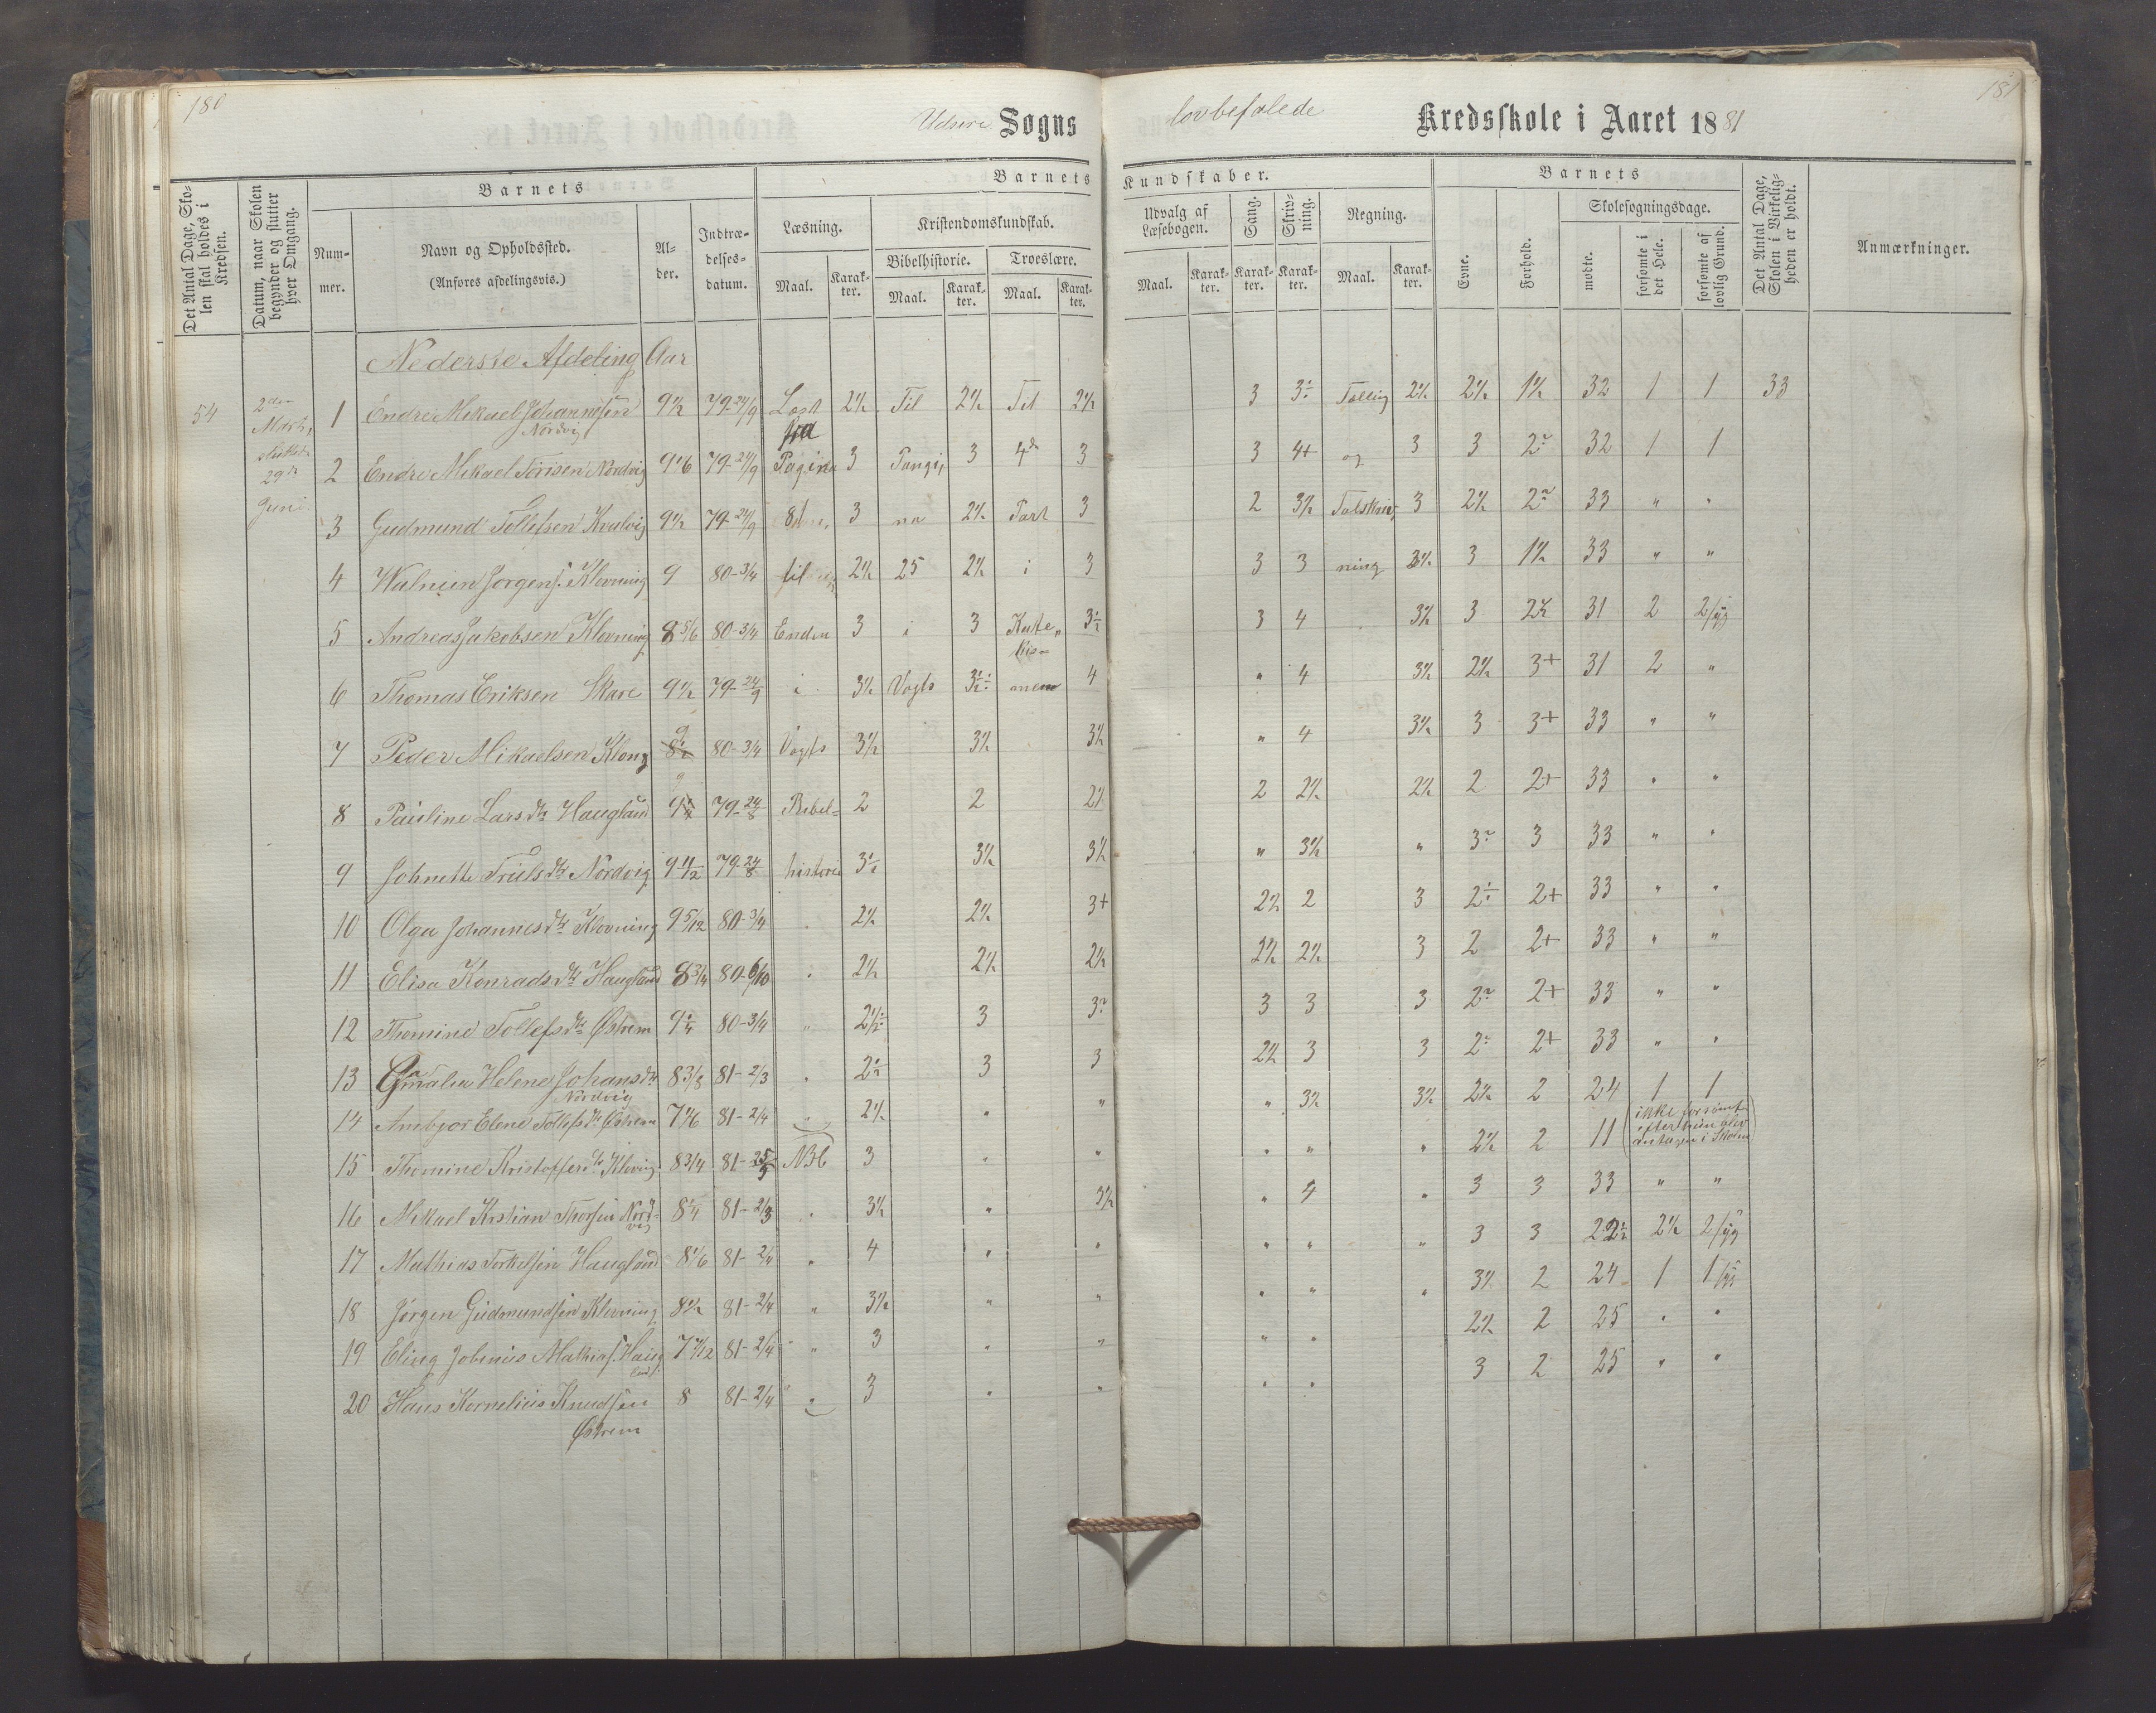 180
Udsire Sogns
Det Antal Dage, Sko-
len skal holdes i
Kredsen.
Datum, naar Skolen
begynder og slutter
hver Omgang.
Barnets
Num-
mer.
Navn og Opholdssted.
(Anføres afdelingsvis.)
Al-
der.
Indtræ-
delses-
datum.
Barnets
Læsning.
Maal.
Karak-
ter.
Kristendomskundskab.
Bibelhistorie.
Maal.
Karak-
ter.
Troeslære.
Maal.
Karak-
ter.
Nederste Afdeling Aar
54
2den
Marts,
sluttede
29de
Juni
1 Endre Mikael Johannesen 9½ 79-24/9 Læst 2½ Til 2½ Til 2½
Nordvig fra
2 Endre Mikael Torisen Nordvig 9 1/6 79-24/9 Pagina 3 Pangi, 3 4de 3
3 Gudmund Tollefsen Kvalvig 9½ 79-24/9 81 3 na 2½ Part 3
4 Jorgens. Klovning 9 80-3/4 til 2½ 25 2½ i 3
5 Andreas Jakobsen Klovning 8 5/6 80-3/4 Enden 3 i 3 Kate, 3½
kis-
6 Thomas Eriksen Skare 9½ 79-24/9 i 3½ Vogts 3½ men 4
7 Peder Mikaelsen Klong 9 80-3/4 Vogts 3½ 3½ 3½
8 Pauline Larsdtr Haugland 9 79-24/8 Bibel- 2 2 2½
9 Johnette Trulsdtr Nordvig 9 11/12 79-24/8 historie 3½ 3½ 3½
10 Olga Johannesdtr Klovning 9 5/12 80-3/4 2½ 2½ 3+
11 Elisa Konradsdtr Haugland 8 3/4 80-6/10 2½ 2½ 2½
12 Thomine Tollefsdtr Østrem 9 1/4 80-3/4 " 2½ 3 3
13 Amalia Helene Johansdtr 8 3/8 81-2/3 2½ 3 3
Nordvig
14 Ambjor Elene Tollefsdtr Østrem 7 1/6 81-2/4 " 2½ " "
15 Thomine Kristoffersdtr Kloving 8 3/4 81-25/5 ABC 3 " "
16 Mikael Kristian Thorsen Nord- 8 1/4 81-2/3 " 3½ " 3½
vig
17 Mathias Torkelsen Haugland 8 1/6 81-2/4 " 4 " "
18 Jørgen Gudmundsen Klovning 8½ 81-2/4 " 3½ " "
19 Eling Johnnis Mathias. Haug 7 11/12 81-2/4 " 3 " "
land.
20 Hans Kornelius Knudsen 8 81-2/4 " 3 " "
Østrem
181
lovbefalede Kredsskole i Aaret 1881
Kundskaber.
Udvalg af
Læsebogen.
Maal.
Karak-
ter.
Sang.
Karak-
ter.
Skriv-
ning.
Karak-
ter.
Regning.
Maal.
Karak-
ter.
Barnets
Evne.
Forhold.
Skolesøgningsdage.
mødte.
forsømte i
det Hele.
forsømte af
lovlig Grund.
Det Antal Dage,
Skolen i Virkelig-
heden er holdt.
Anmærkninger.
3 3÷ Tælling 2½ 2½ 1½ 32 1 1 33
3 4+ og 3 3 2 32 1 1
2 3½ Talskriv, 3 2½ 2 33 " "
3 3 ning 3½ 3 1½ 33 " "
3 4 3½ 3 2½ 31 2 2/syg
" 4 3½ 2½ 3+ 31 2 "
" 4 3½ 3 3+ 33 " "
2 2½ 2½ 2 2+ 33 " "
" 3½ " 3 3 33 " "
2½ 2 3 2÷ 2+ 33 " "
2½ 2½ 3 2 2+ 33 " "
3 3 3 2 2+ 33 " "
2½ 3 3 2 2+ 33 " "
" 3½ 3½ 2½ 2 24 1 1
" " " 2½ 2 11 (ikke forsømt
efter hun blev
antagen i Skolen)
" 4 " 3 3 33 " "
" " " 3 3 22½ 2½ 2/syg
" " " 3½ 2 24 1 1/syg
" " 2½ 2 25 " "
" " 3 2 25 " "